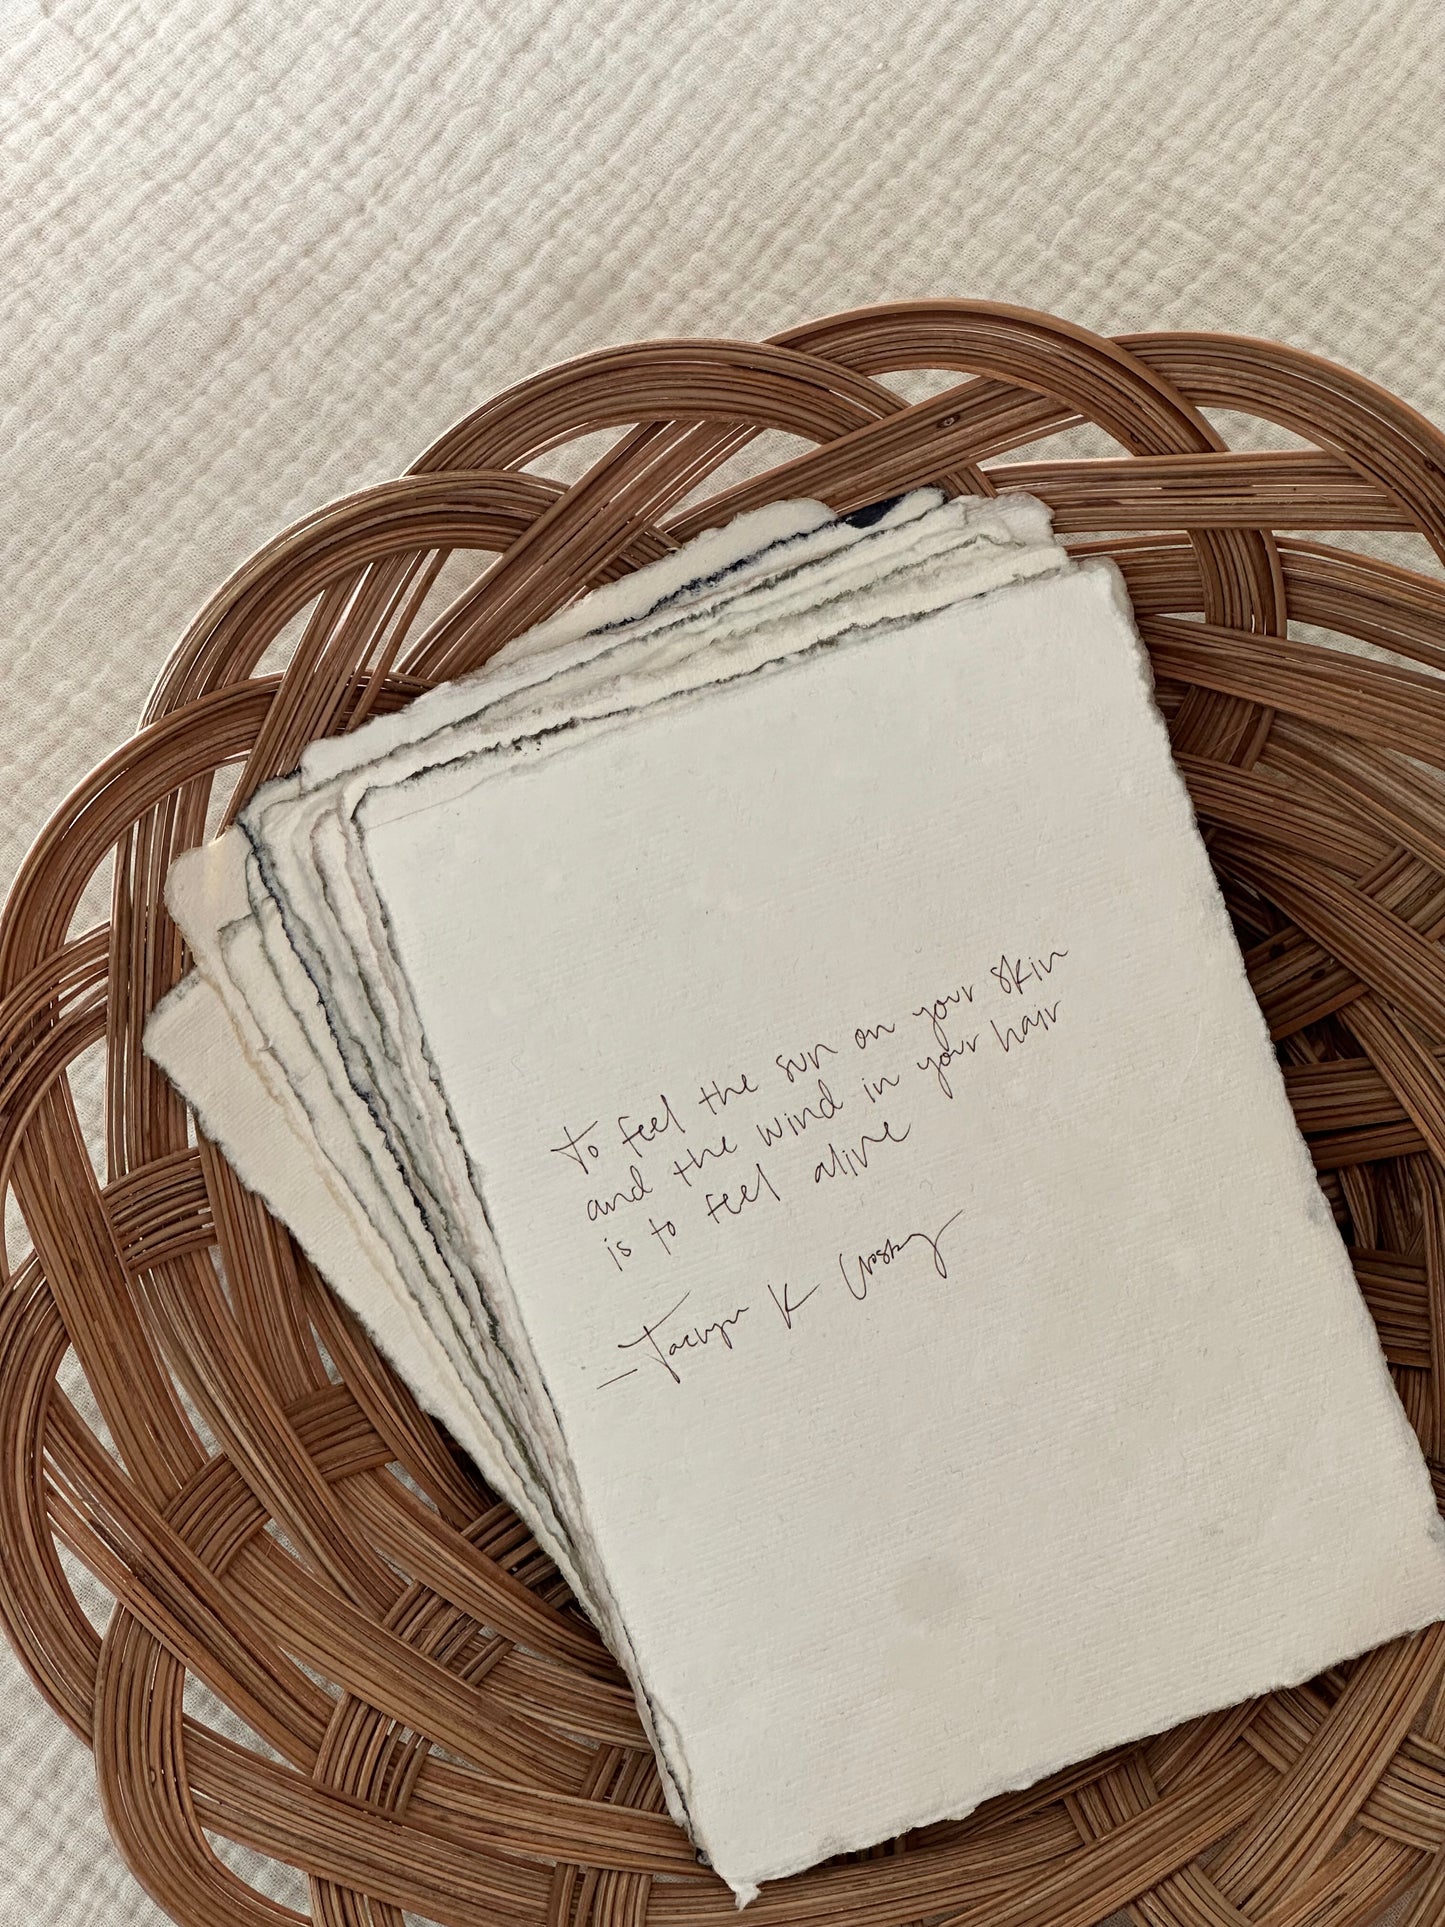 to feel the sun on your skin
and the wind in your hair
is to feel alive
— K Crosby